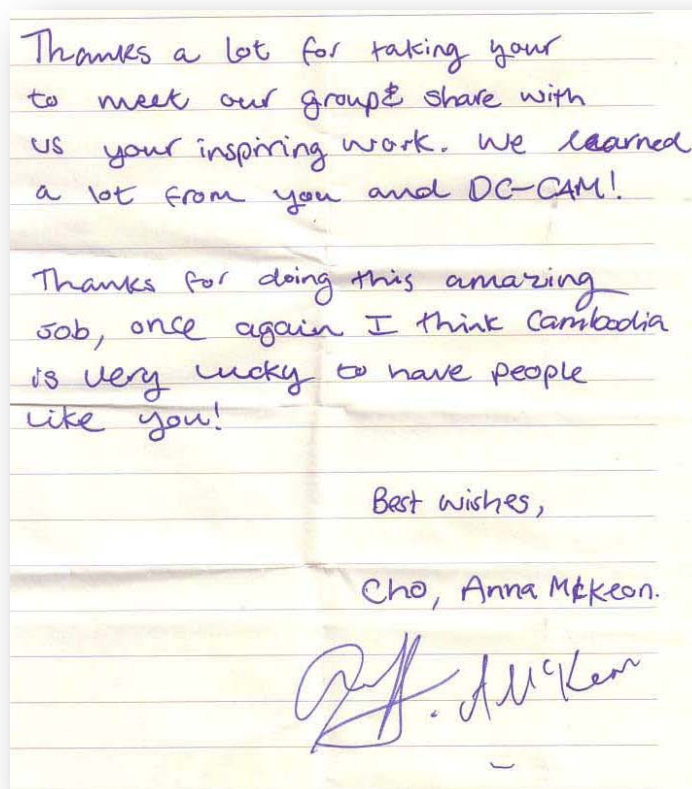 Thanks a lot for taking your
to meet our group & share with
us your inspiring work. We learned
a lot from you and DC-CAM!
Thanks for doing this amazing
job, once again I think Cambodia
is very lucky to have people
like you!
Best wishes,
Cho, Anna McKeon.
A McKeon